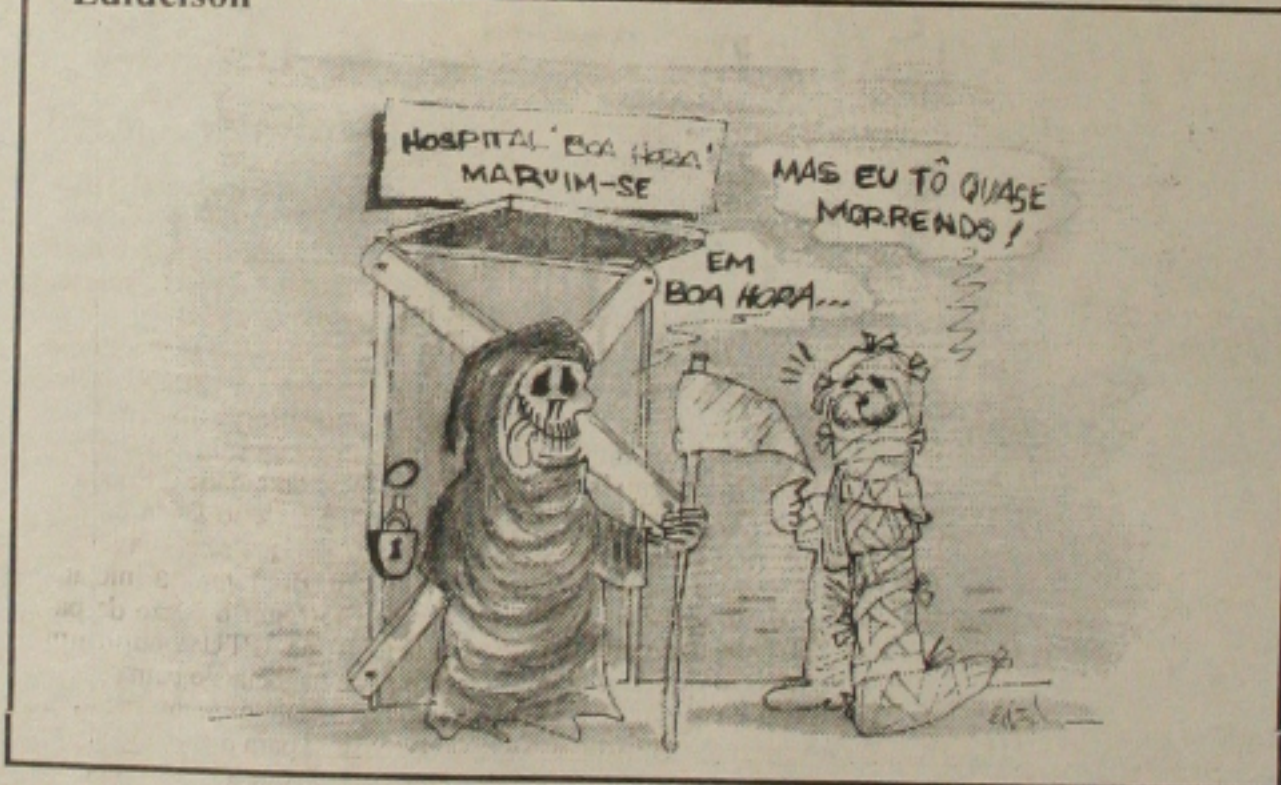 Edidelson
HOSPITAL "BOA HORA"
MARUIM-SE
MAS EU TÔ QUASE
MORRENDO!
EM
BOA HORA...